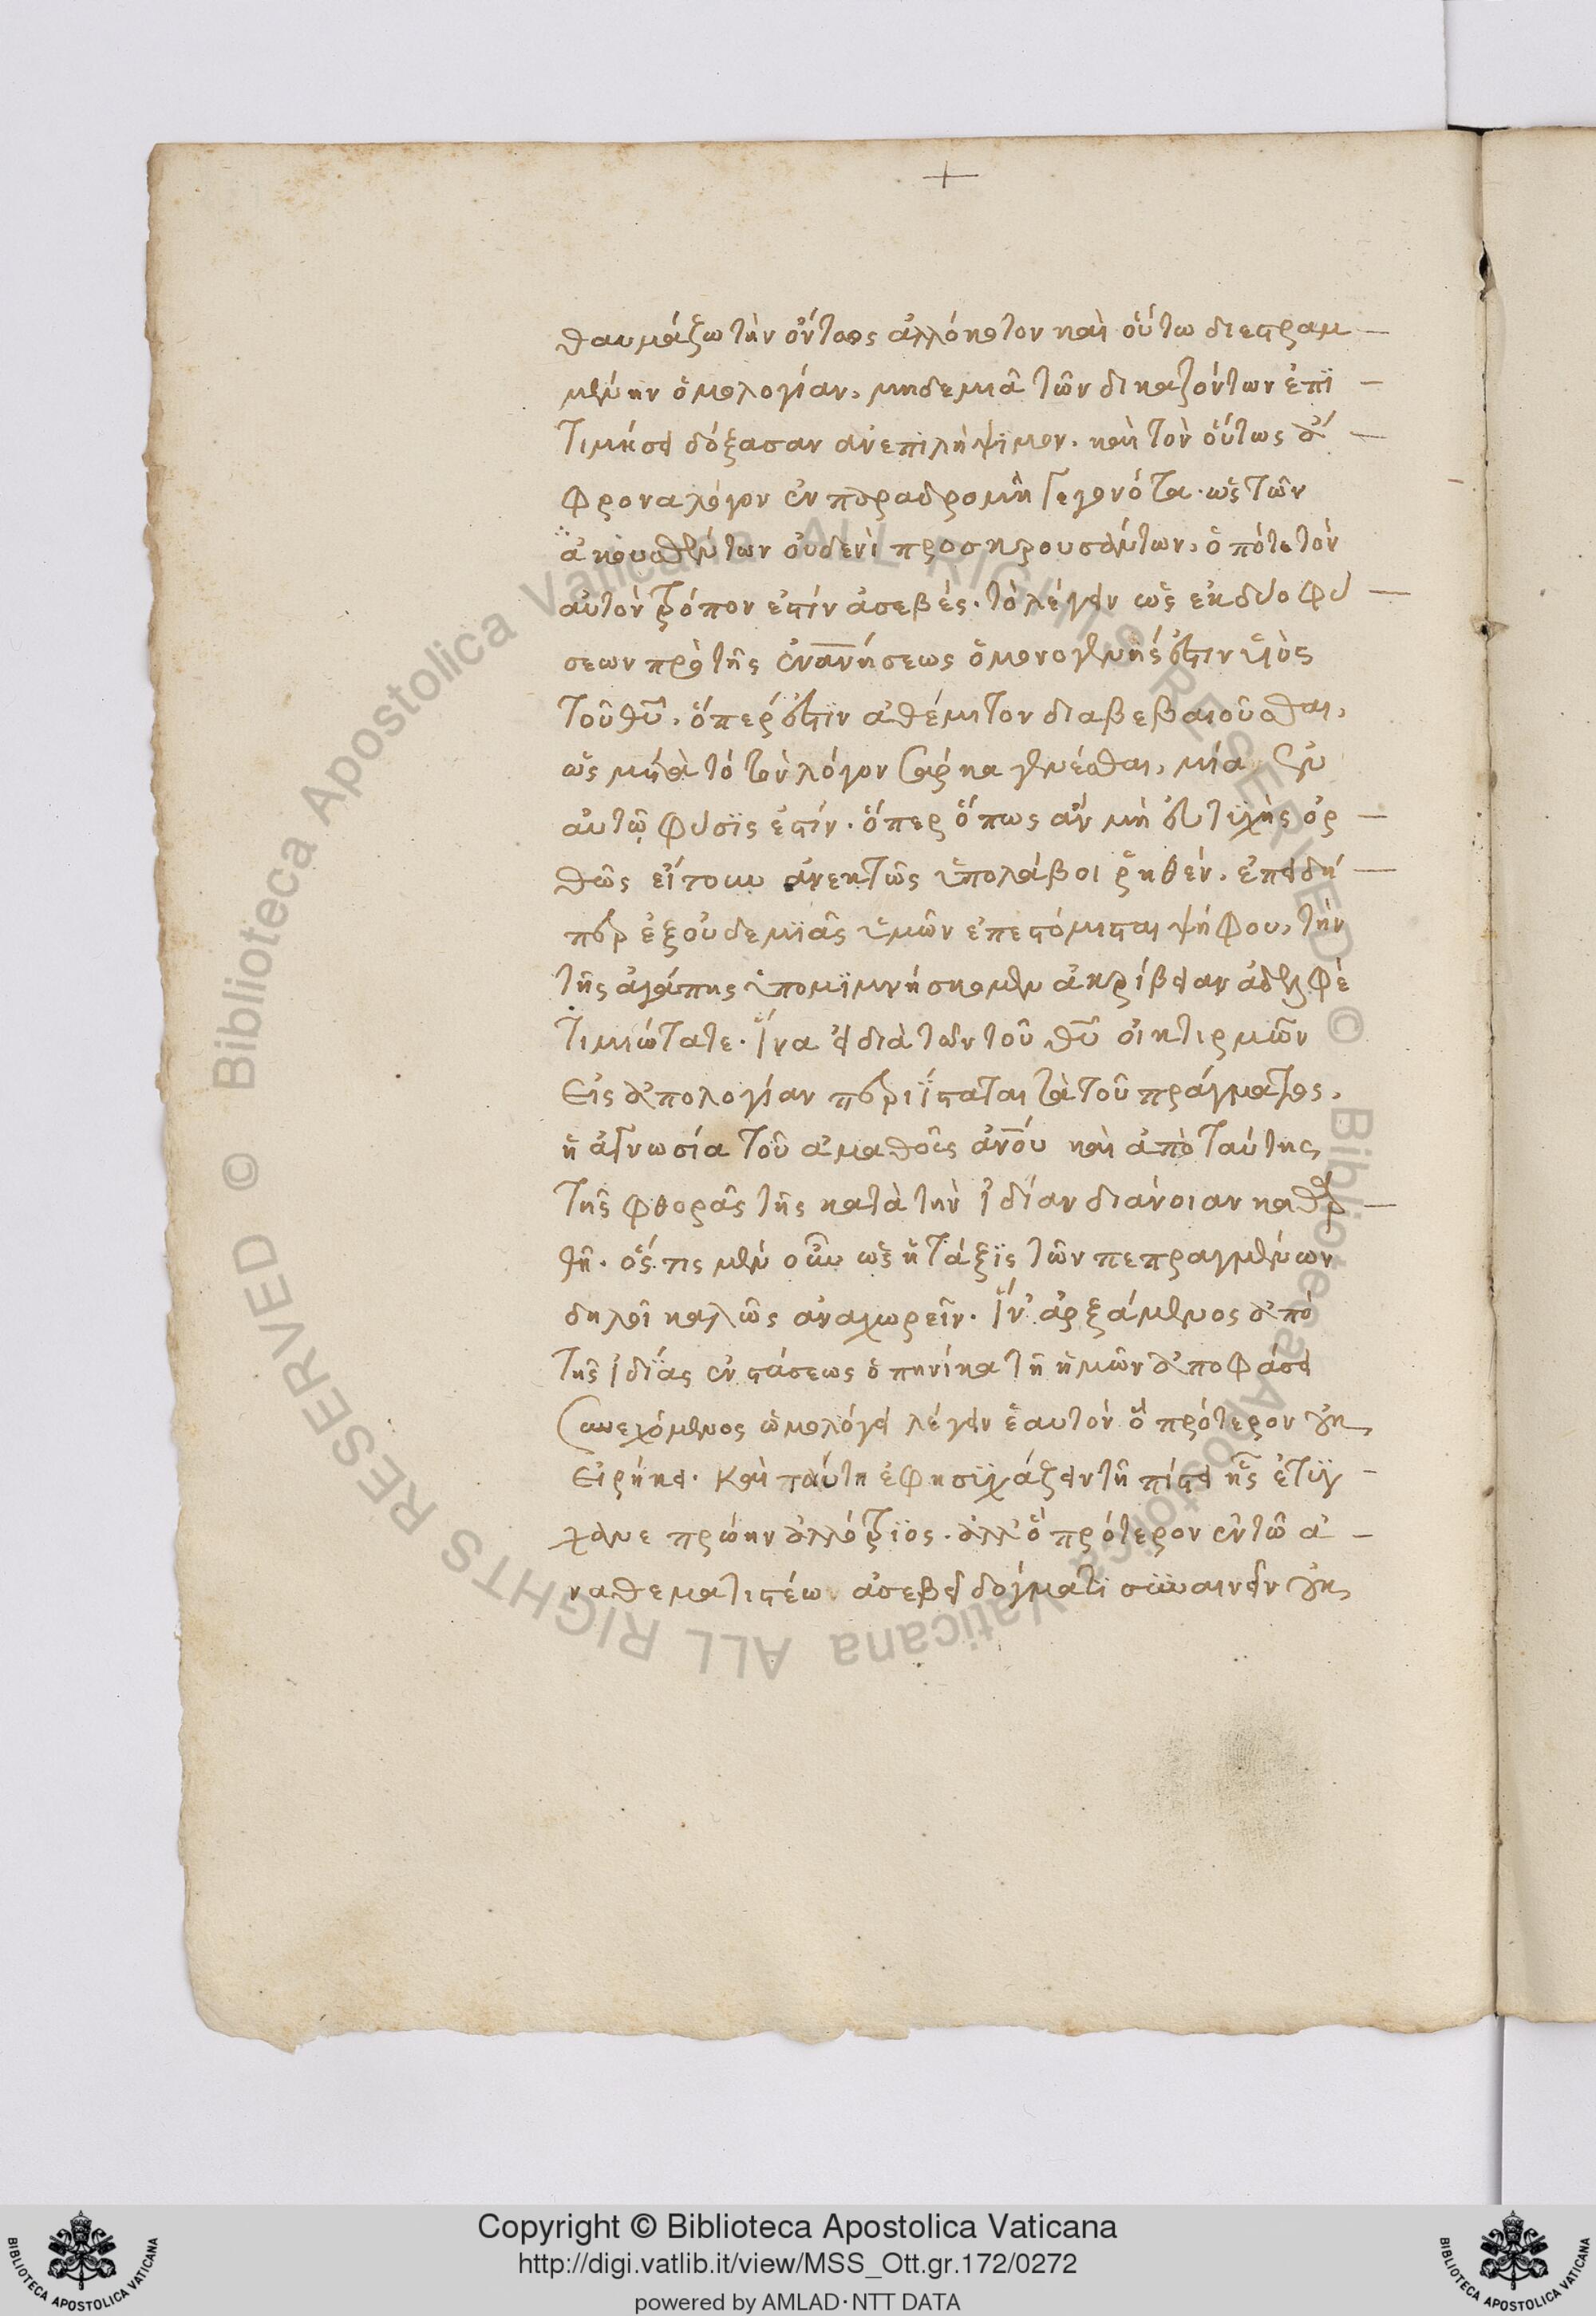 +
θαυμάζω τὴν ὄντως ἀλλόκοτον καὶ οὕτω διεστραμ
μένην ὁμολογίαν, μηδεμιᾶ τῶν δικαζόντων ἐπι
τιμήσει δόξασαν ἀνεπιλήψιμον. καὶ τὸν οὕτως ἄ
φρονα λόγον ἐν παραδρομῆ γεγονότα. ὡς τῶν
ἀκουσθέντων οὐδενὶ προσκρουσάντων, ὁπότε τὸν
αὐτὸν τρόπον ἐστὶν ἀσεβές. τὸ λέγειν ὡς ἐκ δύο φύ
σεων πρὸ τῆς ἐνανήσεως ὁ μονογενής ἐστιν υἱὸς
τοῦ θυ. ὅπερ ἐστὶν ἀθέμιτον διαβεβαιοῦσθαι,
ὡς μετὰ τὸ τὸν λόγον σάρκα γενέσθαι, μία ἐν
αὐτῷ φύσϊς ἐστίν. ὅπερ ὅπως ἂν μὴ εὐτυχὴς ὀρ
θῶς εἴτουν ἀνεκτῶς ὑπολάβοι ῥηθέν. ἐπειδή
περ ἐξ οὐδεμϊᾶς ὑμῶν ἐπεστόμισται ψήφου, τὴν
τῆς ἀγάπης ὑπομϊμνήσκομεν ἀκρίβειαν ἀδελφέ
τιμιώτατε. ἵνα εἰ διὰ τῶν τοῦ θυ οἰκτιρμῶν
εἰς ἀπολογίαν περιΐσταται τὰ τοῦ πράγματος,
ἡ ἀγνωσία τοῦ ἀμαθοῦς ἀνου καὶ ἀπὸ ταύτης
τῆς φθορᾶς τῆς κατὰ τὴν ἰδίαν διάνοιαν καθαρ
θῆ. ὅς τις μὲν οὖν ὡς ἡ τάξϊς τῶν πεπραγμένων
δηλοῖ καλῶς ἀναχωρεῖν. ἵν' ἀρξάμενος ἀπὸ
τῆς ἰδίας ἐνστάσεως ὁπηνίκα τῆ ἡμῶν ἀποφάσει
συνεχόμενος ὡμολόγει λέγειν ἑαυτὸν ὃ πρότερον οὐκ
εἰρήκει. Καὶ ταύτη ἐφησϋχάζειν τῆ πίστει ἧς ἐτύγ
χανε πρώην ἀλλότρϊος. ἀλλ' ὃ πρότερον ἐν τῶ ἀ
ναθεματιστέω ἀσεβεῖ δόγματϊ συναινεῖν οὐκ
Copyright © Biblioteca Apostolica Vaticana
http://digi.vatlib.it/view/MSS_Ott.gr.172/0272
powered by AMLAD·NTT DATA